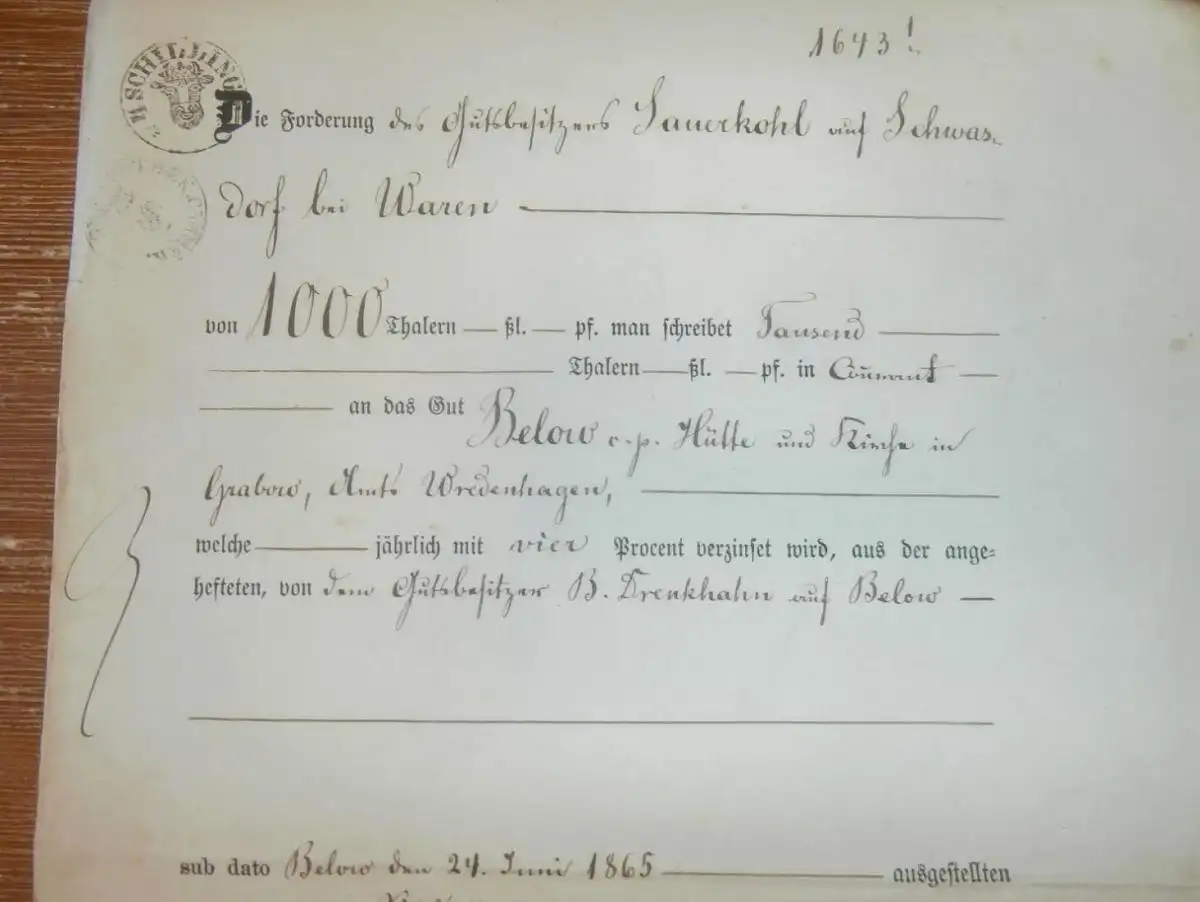 1643!
SCHILLING
Die Forderung des Gutsbesitzers Sauerkohl auf Schwas-
dorf bei Waren
von 1000 Thalern — ßl. — pf. man schreibet Tausend
Thalern — ßl. — pf. in Courant —
an das Gut Below c. p. Hütte und Kirche in
Grabow, Amts Wredenhagen,
welche — jährlich mit vier Procent verzinset wird, aus der ange-
hefteten, von dem Gutsbesitzer B. Drenkhahn auf Below —
sub dato Below den 24. Juni 1865 — ausgestellten